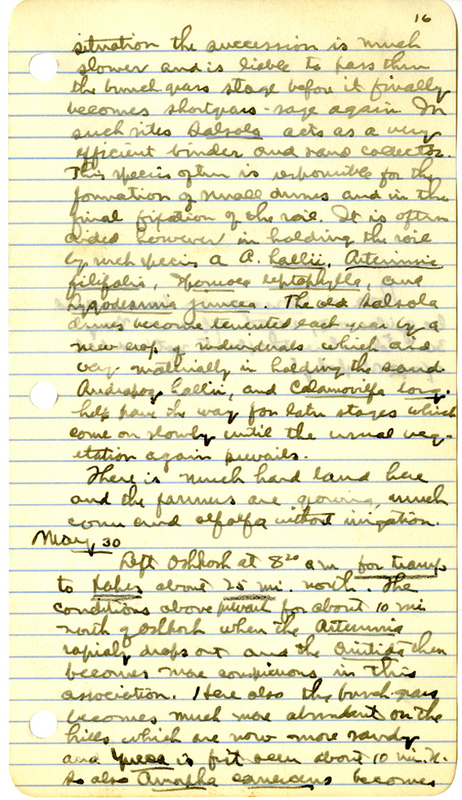 16
situation the succession is much
slower and is liable to pass thru
the bunch grass stage before it finally
becomes shortgrass-sage again. In
such sites Salsola acts as a very
efficient binder and sand collector.
This species often is responsible for the
formation of small dunes and in the
final fixation of the soil. It is often
aided however in holding the soil
by such species a A. hallii, Artemisia
filifolia, Ipomoea leptophylla, and
Lygodesmia juncea. The old Salsola
dunes become tenented each year by a
new crop of individuals which aid
very materially in holding the sand
Andropog hallii, and Calamovilfa long.
help pave the way for later stages which
come on slowly until the usual veg-
etation again prevails.
There is much hard land here
and the farmers are growing much
corn and alfalfa without irrigation.
May 30
Left Oshkosh at 8 20 a.m. for tramp
to lakes about 25 mi. north. The
conditions above prevail for about 10 mi
north of Oshkosh when the Artemisia
rapidly drops out and the then
becomes more conspicuous in this
association. Here also the bunch-grass
becomes much more abundant on the
hills which are now more sandy
and Yucca is first seen about 10 mi. N.
so also Amorpha canescens becomes